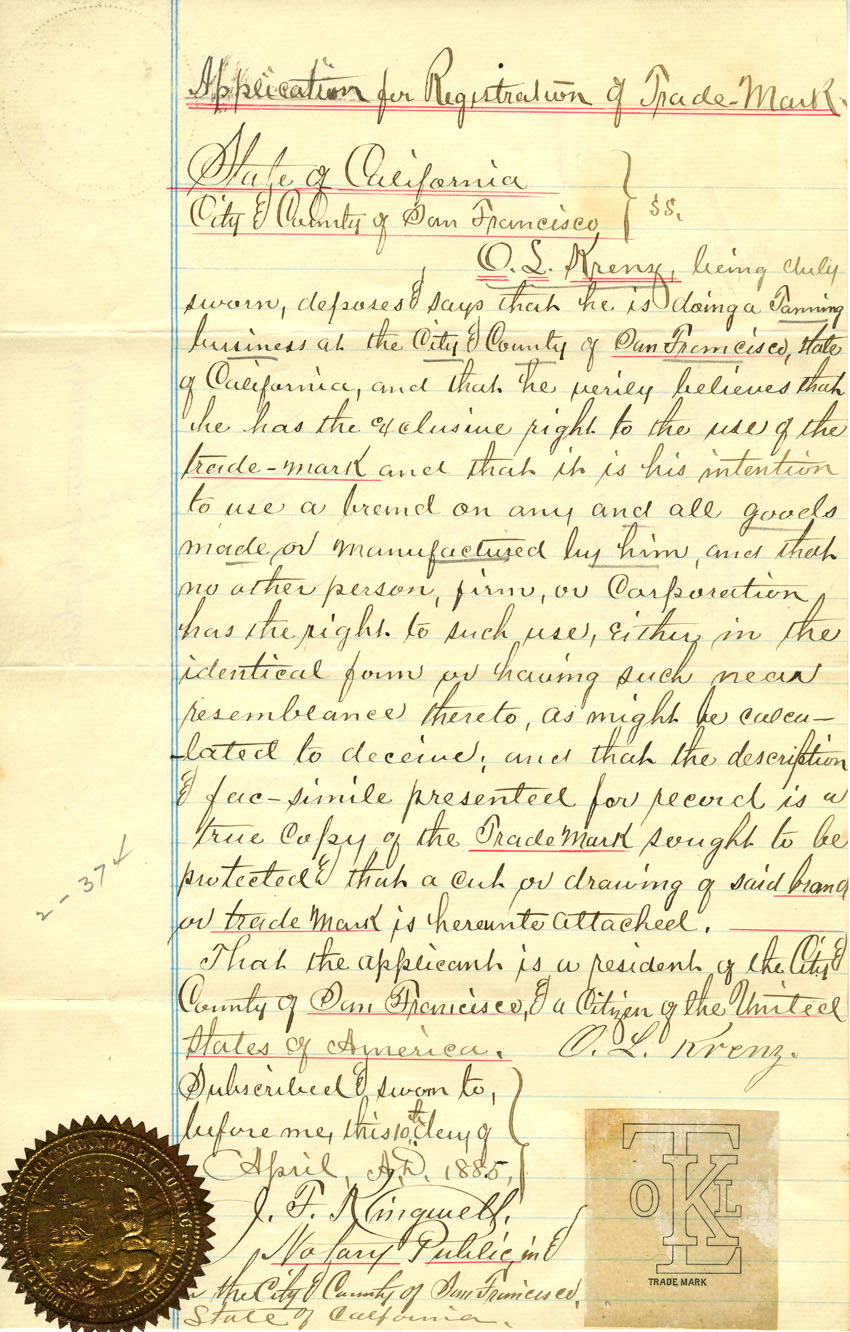 Application for Registration of Trade-Mark.
State of California
City & County of San Francisco } ss.
O. L. Krenz, being duly
sworn, deposes & says that he is doing a Tanning
business at the City & County of San Francisco, State
of California, and that he verily believes that
he has the exclusive right to the use of the
trade-mark and that it is his intention
to use a brand on any and all goods
made or manufactured by him, and that
no other person, firm, or Corporation
has the right to such use, either in the
identical form or having such near
resemblance thereto, as might be calcu-
-lated to deceive; and that the description
& fac-simile presented for record is a
true Copy of the Trade Mark sought to be
protected & that a cut or drawing of said brand
or trade Mark is hereunto attached.
That the applicant is a resident of the City &
County of San Francisco, & a Citizen of the United
States of America. O. L. Krenz.
Subscribed & sworn to,
before me, this 10th day of
April, A.D. 1885,
J. F. Kingwell,
Notary Public, in &
the City & County of San Francisco,
State of California.
2-374
O T K L
TRADE MARK